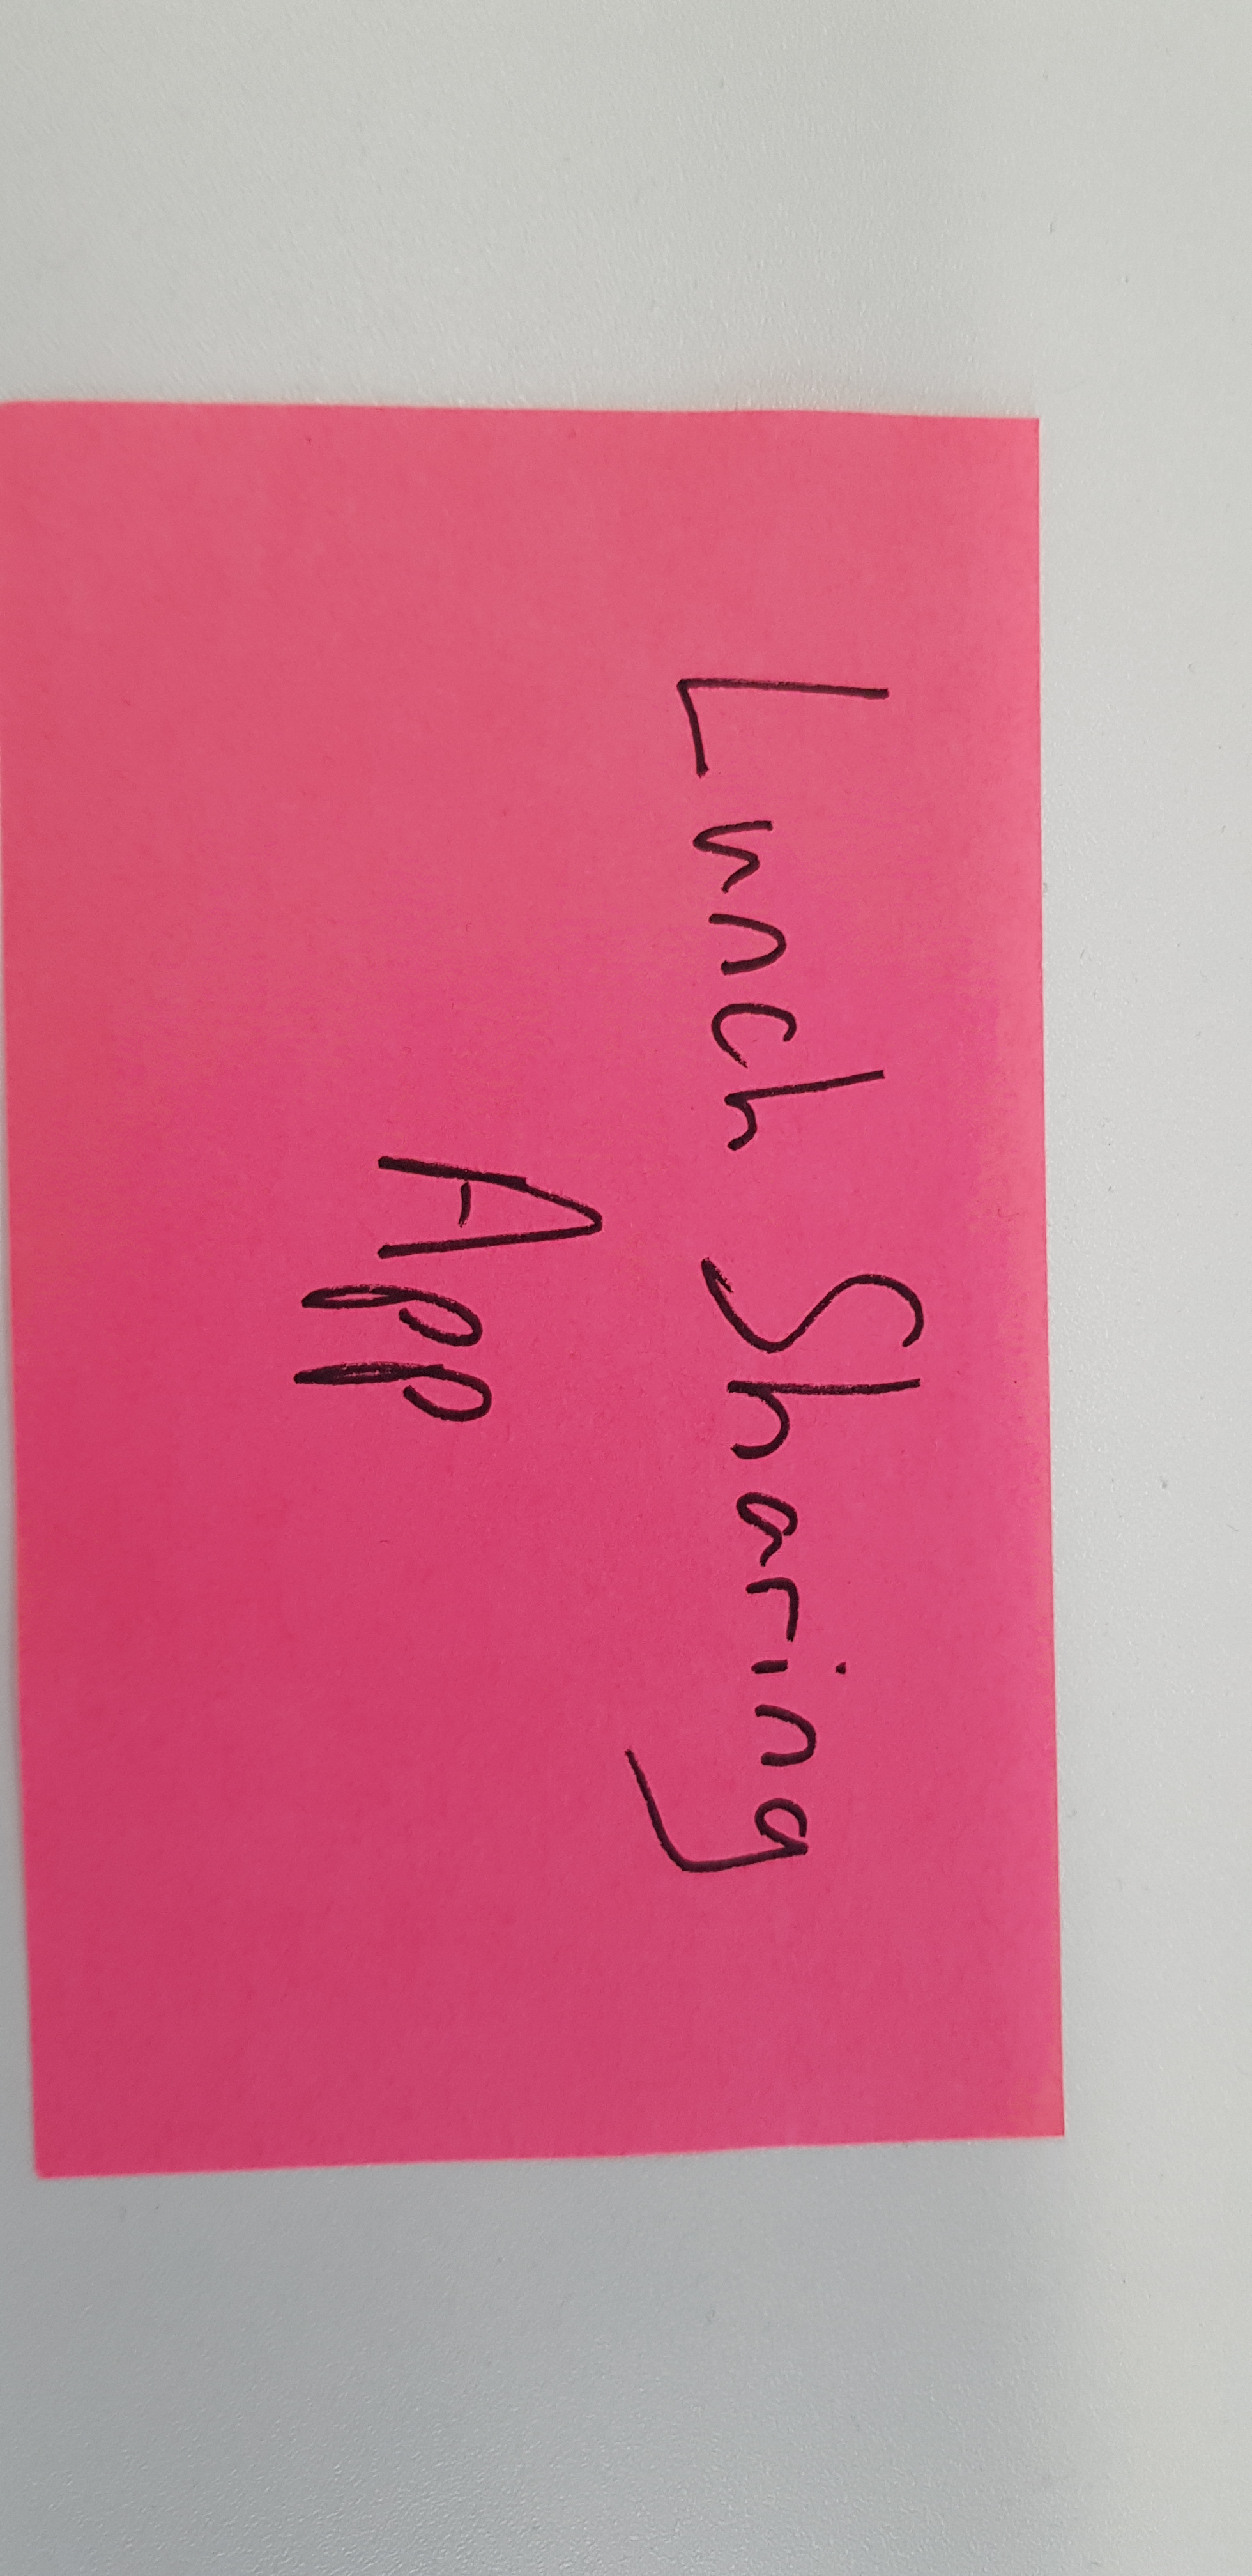 Lunch Sharing
App